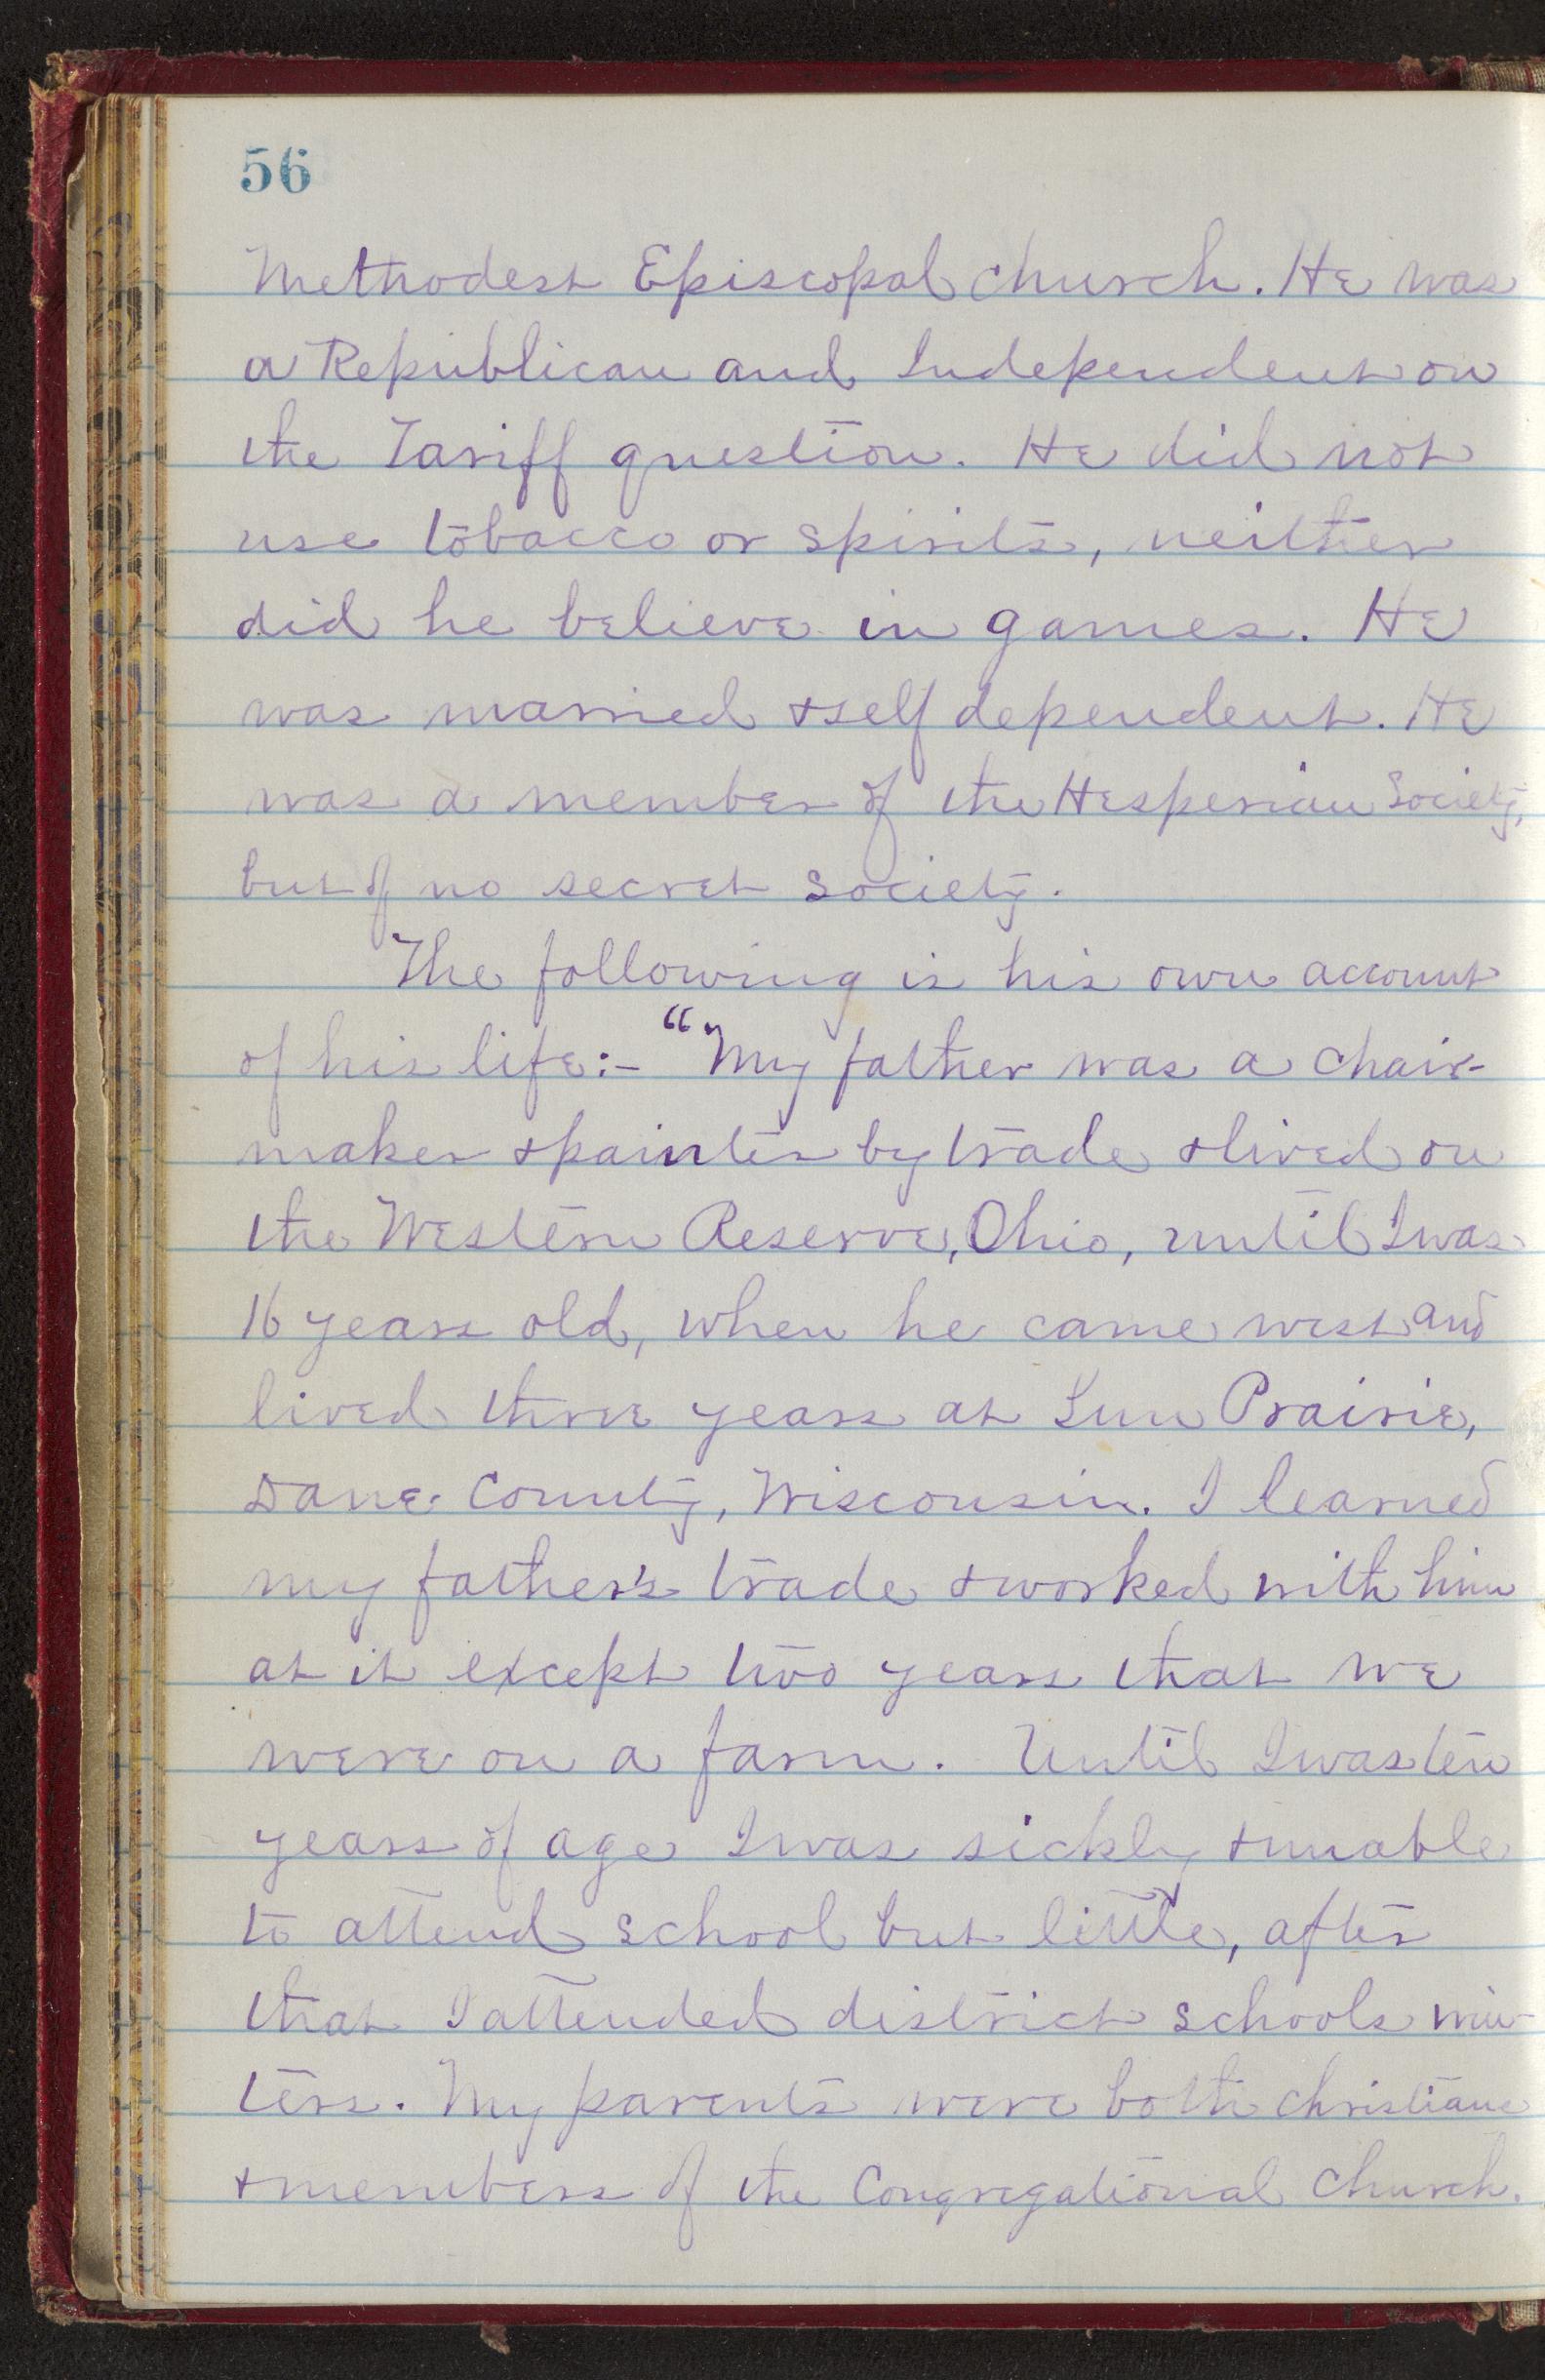 56
Methodest Episcopal church. He was
a Republican and Independent on
the Tariff question. He did not
use tobacco or spirits, neither
did he believe in games. He
was married & self dependent. He
was a member of the Hesperian Society,
but of no secret society.
The following is his own account
of his life:- "My father was a chair-
maker & painter by trade & lived on
the Western Reserve, Ohio, until I was
16 years old, when he came west and
lived three years at Sun Prairie,
Dane County, Wisconsin. I learned
my father's trade & worked with him
at it except two years that we
were on a farm. Until I was ten
years of age I was sickly & unable
to attend school but little, after
that I attended district schools win-
ters. My parents were both christians
& members of the Congregational church.